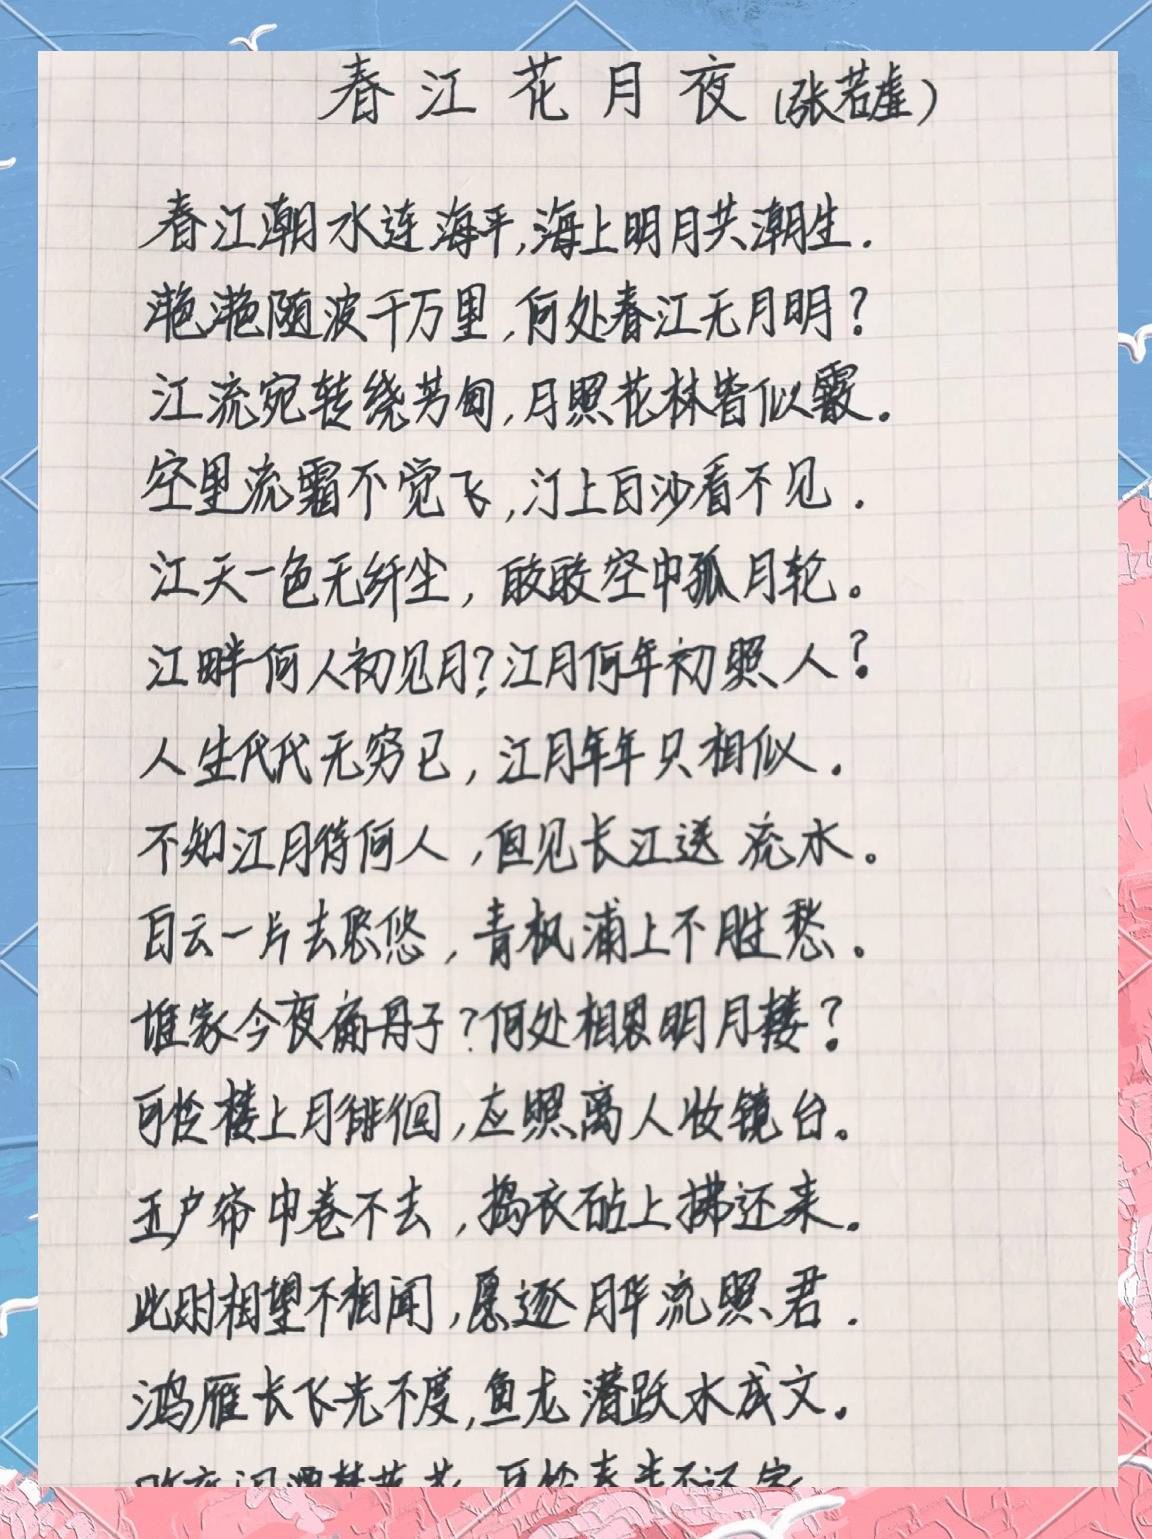 春江花月夜(张若虚)
春江潮水连海平,海上明月共潮生.
滟滟随波千万里,何处春江无月明?
江流宛转绕芳甸,月照花林皆似霰.
空里流霜不觉飞,汀上白沙看不见.
江天一色无纤尘,皎皎空中孤月轮。
江畔何人初见月?江月何年初照人?
人生代代无穷已,江月年年只相似.
不知江月待何人,但见长江送流水。
白云一片去悠悠,青枫浦上不胜愁。
谁家今夜扁舟子?何处相思明月楼?
可怜楼上月徘徊,应照离人妆镜台。
玉户帘中卷不去,捣衣砧上拂还来.
此时相望不相闻,愿逐月华流照君.
鸿雁长飞光不度,鱼龙潜跃水成文.